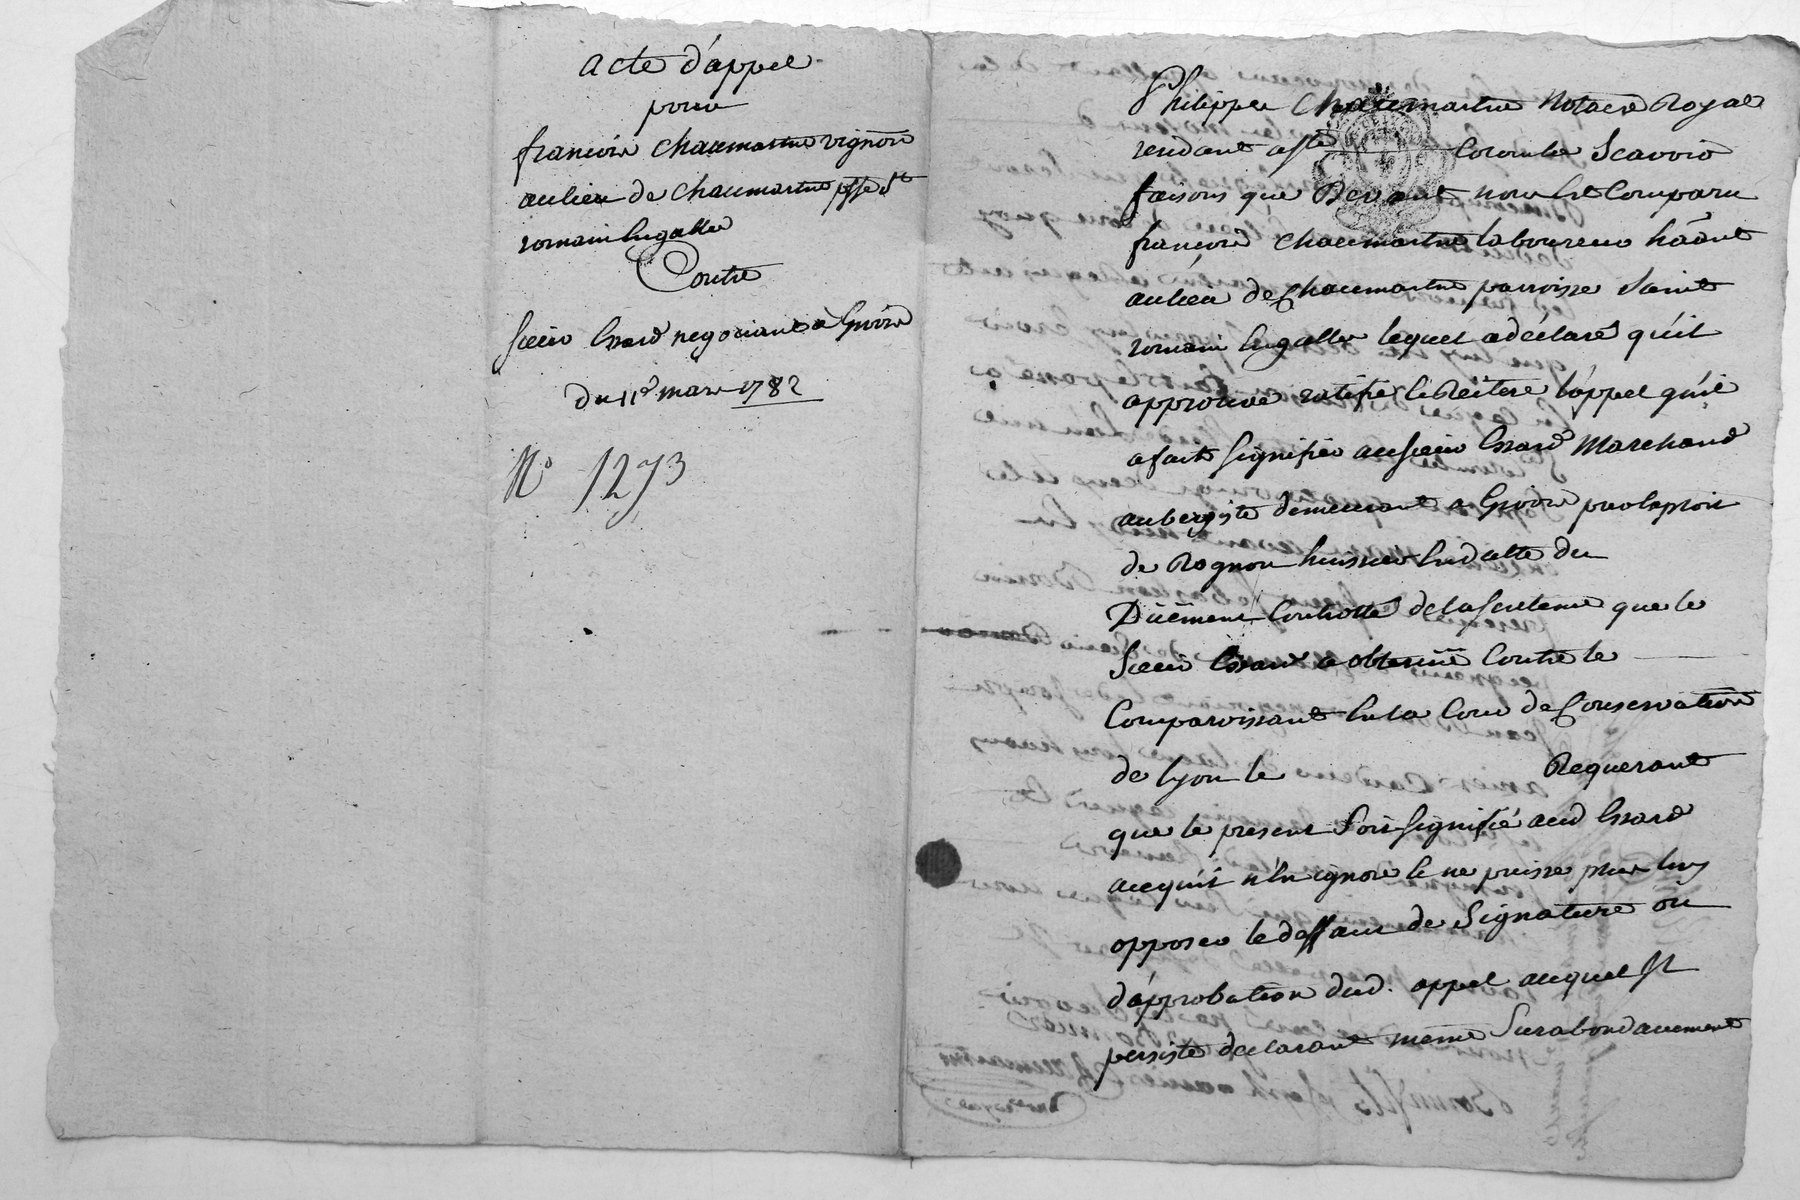 acte d'appel
pour
francois chaumartin vigneron
au lieu de chaumartin psse St
romain Engallier
Contre
Sieur Essard negociant a Givors
du 11e mars 1782
No 1273
Philippe Chaumartin Notaire Royal
rendant a Ste Colombe Scavoir
faisons que Devant nous Est Comparu
francois Chaumartin laboureur hãnt
au lieu de Chaumartin parroisse Saint
romain Engallier lequel a déclaré qu'il
approuve ratifie Et Reitere l'appel qu'il
a fait signifier au sieur Essard Marchand
aubergiste demeurant a Givors par exploit
de Rognon huissier En datte du
Duëment Controllé de la sentence que le
Sieur Essard a obtenuë Contre le
Comparoissant En la Cour de Conservation
de lyon le Requerant
que le present soit signifié aud Essard
acequ'il n'En ignore Et ne puisse plus luy
opposer le deffaut de Signature ou
d'approbation dud. appel auquel Il
persiste declarant même Surabondamment